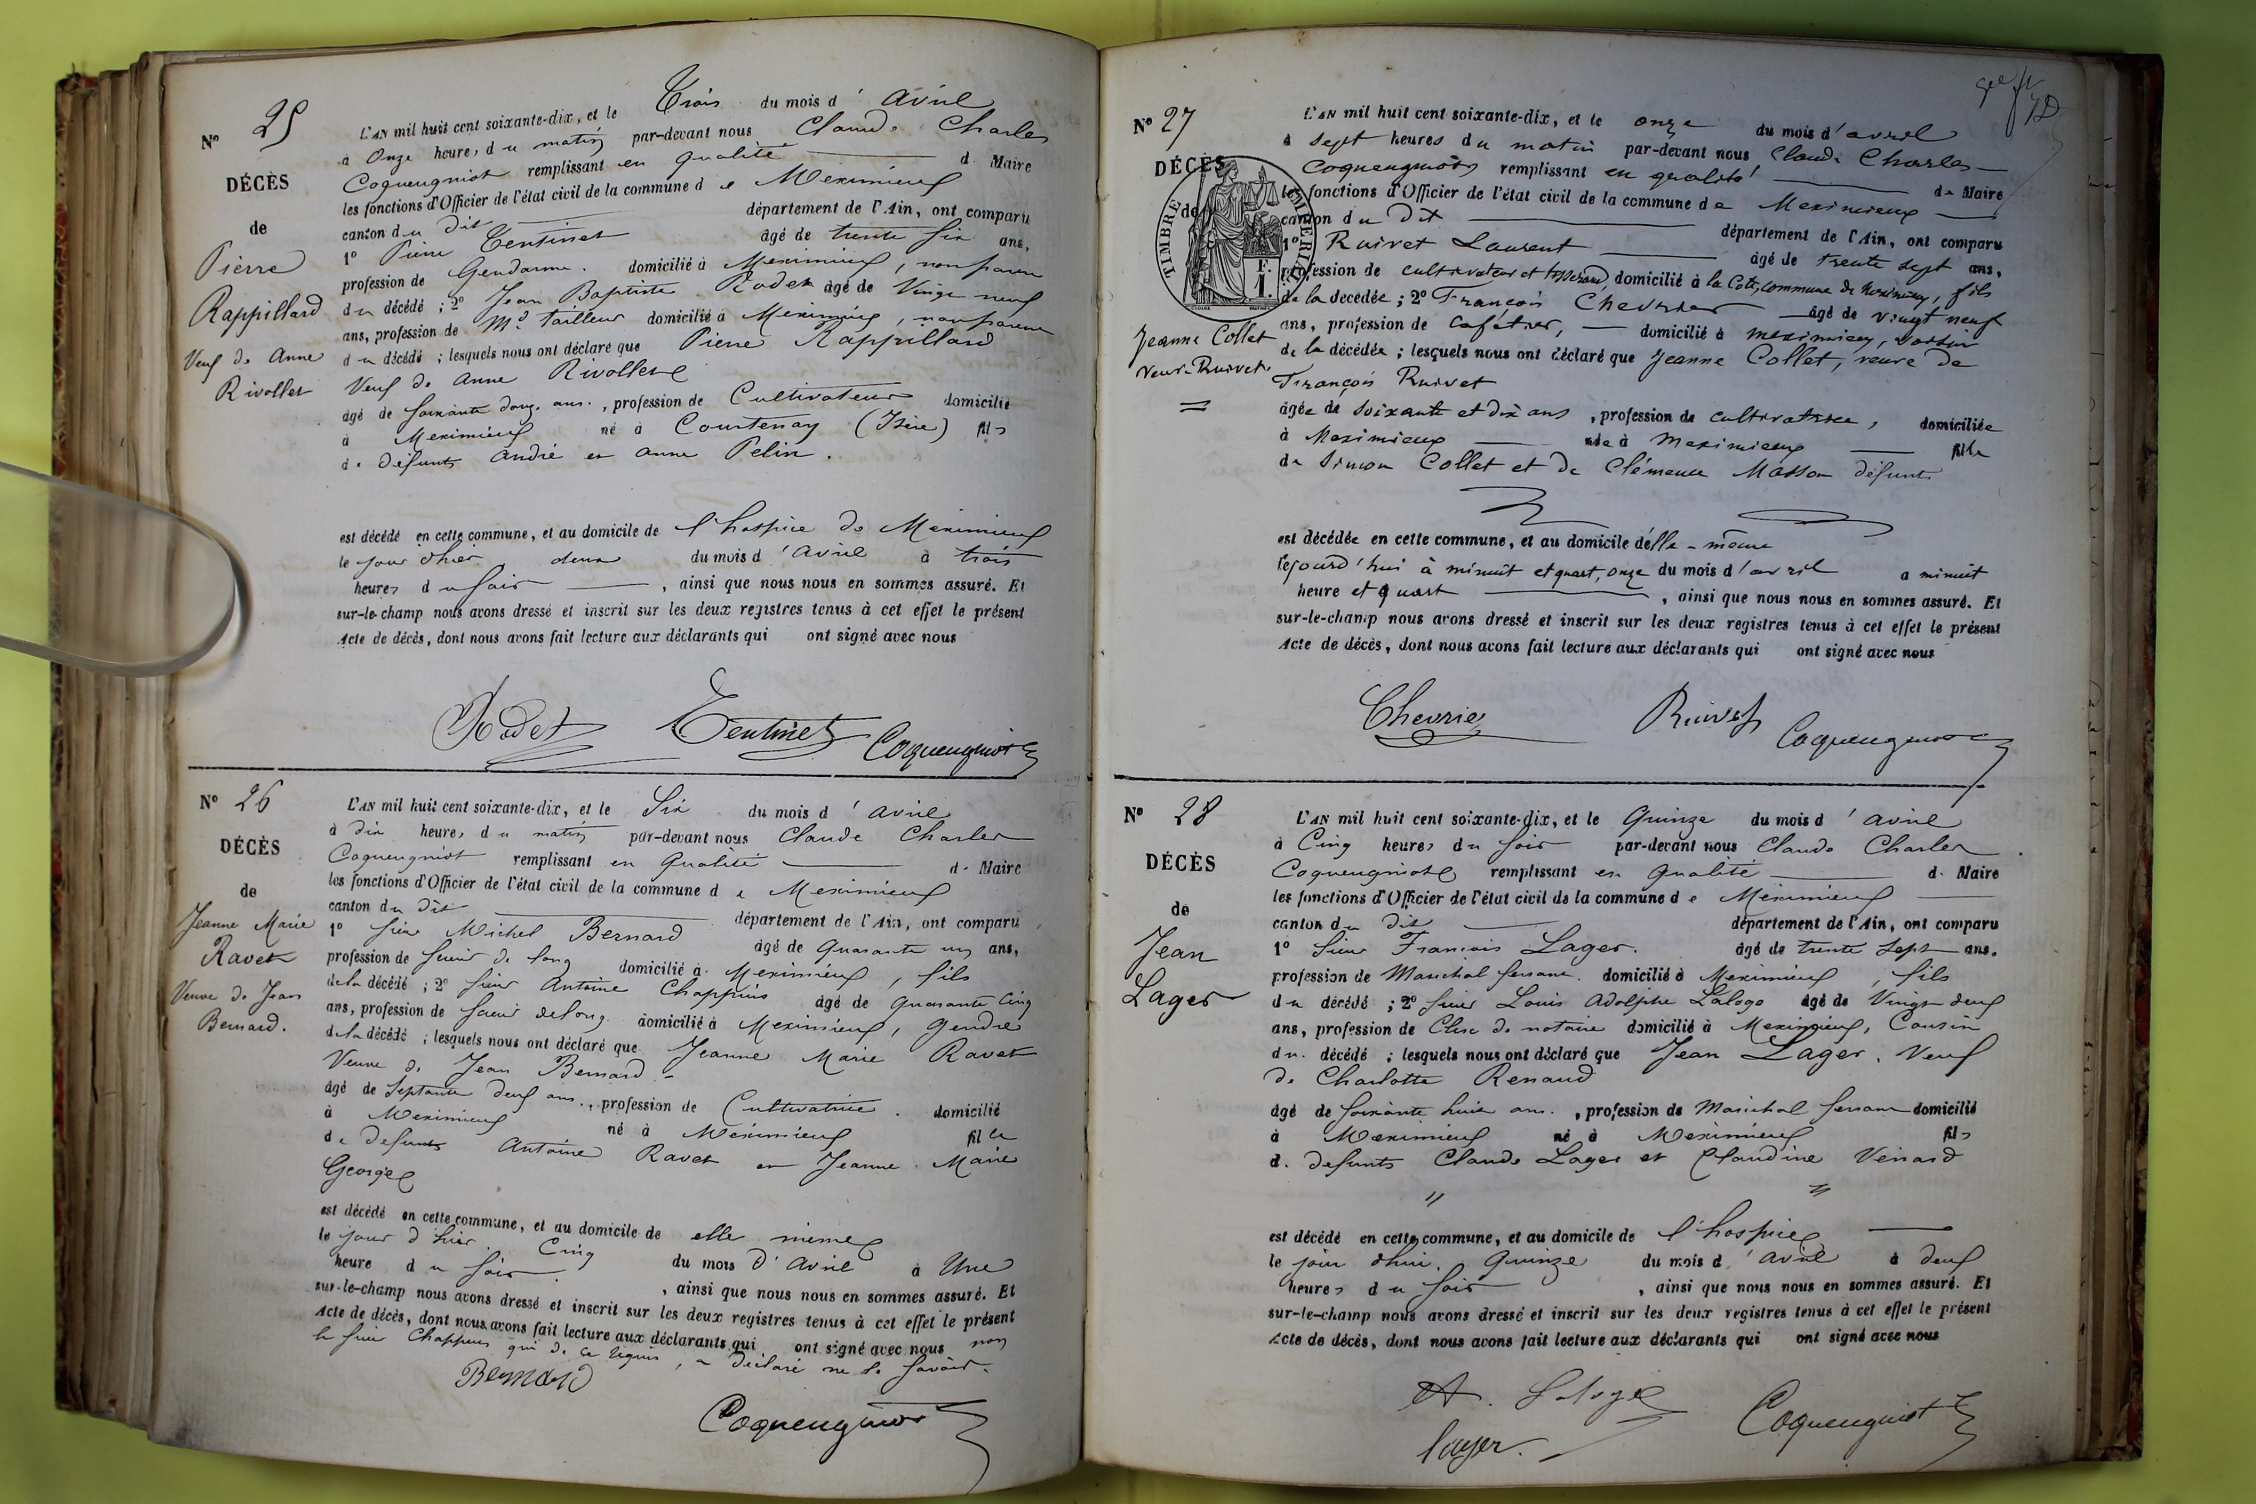 Nº 25
DÉCÈS
de
Pierre
Rappillard
Veuf de Anne
Rivollet
L'AN mil huit cent soixante-dix, et le Trois du mois d'avril
à Onze heures du matin par-devant nous Claude Charles
Coqueugniot remplissant en qualité de Maire
les fonctions d'Officier de l'état civil de la commune de Meximieux
canton du dit département de l'Ain, ont comparu
1º Pierre Tentinet âgé de trente six ans,
profession de Gendarme. domicilié à Meximieux, non parent
du décédé ; 2º Jean Baptiste Rodet âgé de Vingt neuf
ans, profession de Md tailleur domicilié à Meximieux, non parent
du décédé ; lesquels nous ont déclaré que Pierre Rappillard
Veuf de Anne Rivollet
âgé de soixante douze ans., profession de Cultivateur domicilié
à Meximieux né à Courtenay (Isère) fils
de défunts André et Anne Pelin.
est décédé en cette commune, et au domicile de l'hospice de Meximieux
le jour d'hier deux du mois d'avril à trois
heures du soir, ainsi que nous nous en sommes assuré. Et
sur-le-champ nous avons dressé et inscrit sur les deux registres tenus à cet effet le présent
Acte de décès, dont nous avons fait lecture aux déclarants qui ont signé avec nous
Rodet Tentinet Coqueugniot
Nº 26
DÉCÈS
de
Jeanne Marie
Ravet
Veuve de Jean
Bernard.
L'AN mil huit cent soixante-dix, et le Six du mois d'avril
à dix heures du matin par-devant nous Claude Charles
Coqueugniot remplissant en qualité de Maire
les fonctions d'Officier de l'état civil de la commune de Meximieux
canton du dit département de l'Ain, ont comparu
1º sieur Michel Bernard âgé de quarante un ans,
profession de scieur de long domicilié à Meximieux, fils
de la décédé ; 2º sieur Antoine Chappuis âgé de quarante cinq
ans, profession de scieur de long domicilié à Meximieux, gendre
de la décédé ; lesquels nous ont déclaré que Jeanne Marie Ravet
Veuve de Jean Bernard
âgé de septante deux ans., profession de Cultivatrice. domicilié
à Meximieux né à Meximieux fille
de défunts Antoine Ravet et Jeanne Marie
George
est décédé en cette commune, et au domicile de elle même
le jour d'hier Cinq du mois d'avril à Une
heure du soir, ainsi que nous nous en sommes assuré. Et
sur-le-champ nous avons dressé et inscrit sur les deux registres tenus à cet effet le présent
Acte de décès, dont nous avons fait lecture aux déclarants qui ont signé avec nous non
le sieur Chappuis qui de ce requis, a déclaré ne le savoir.
Bernard
Coqueugniot
Nº 27
DÉCÈS
de
TIMBRE IMPÉRIAL
F.
1.
Jeanne Collet
veuve Ruivet.
L'AN mil huit cent soixante-dix, et le onze du mois d'avril
à sept heures du matin par-devant nous Claude Charles
Coqueugniot remplissant en qualité de Maire
les fonctions d'Officier de l'état civil de la commune de Meximieux
canton du dit département de l'Ain, ont comparu
1º Ruivet Laurent âgé de trente sept ans,
profession de cultivateur et tisserand, domicilié à la Côte, commune de Meximieux, fils
de la décédée ; 2º François Chevrier âgé de vingt neuf
ans, profession de cafetier, domicilié à Meximieux, voisin
de la décédée ; lesquels nous ont déclaré que Jeanne Collet, veuve de
François Ruivet
âgée de soixante et dix ans, profession de cultivatrice, domiciliée
à Meximieux née à Meximieux fille
de Simon Collet et de Clémence Masson défunts
est décédée en cette commune, et au domicile d'elle-même
lejourd'hui à minuit et quart, onze du mois d'avril a minuit
heure et quart, ainsi que nous nous en sommes assuré. Et
sur-le-champ nous avons dressé et inscrit sur les deux registres tenus à cet effet le présent
Acte de décès, dont nous avons fait lecture aux déclarants qui ont signé avec nous
Chevrier Ruivet Coqueugniot
Nº 28
DÉCÈS
de
Jean
Lager
L'AN mil huit cent soixante-dix, et le Quinze du mois d'avril
à Cinq heures du soir par-devant nous Claude Charles
Coqueugniot remplissant en qualité de Maire
les fonctions d'Officier de l'état civil de la commune de Meximieux
canton du dit département de l'Ain, ont comparu
1º Sieur François Lager. âgé de trente sept ans.
profession de Maréchal ferrant. domicilié à Meximieux, fils
du décédé ; 2º sieur Louis Adolphe Laloge âgé de Vingt deux
ans, profession de Clerc de notaire domicilié à Meximieux, Cousin
du décédé ; lesquels nous ont déclaré que Jean Lager. Veuf
de Charlotte Renaud
âgé de soixante huit ans., profession de Maréchal ferrant domicilié
à Meximieux né à Meximieux fils
de défunts Claude Lager et Claudine Vénard
est décédé en cette commune, et au domicile de l'hospice
le jour d'hui. Quinze du mois d'avril à deux
heures du soir, ainsi que nous nous en sommes assuré. Et
sur-le-champ nous avons dressé et inscrit sur les deux registres tenus à cet effet le présent
Acte de décès, dont nous avons fait lecture aux déclarants qui ont signé avec nous
A. Laloge
Lager. Coqueugniot